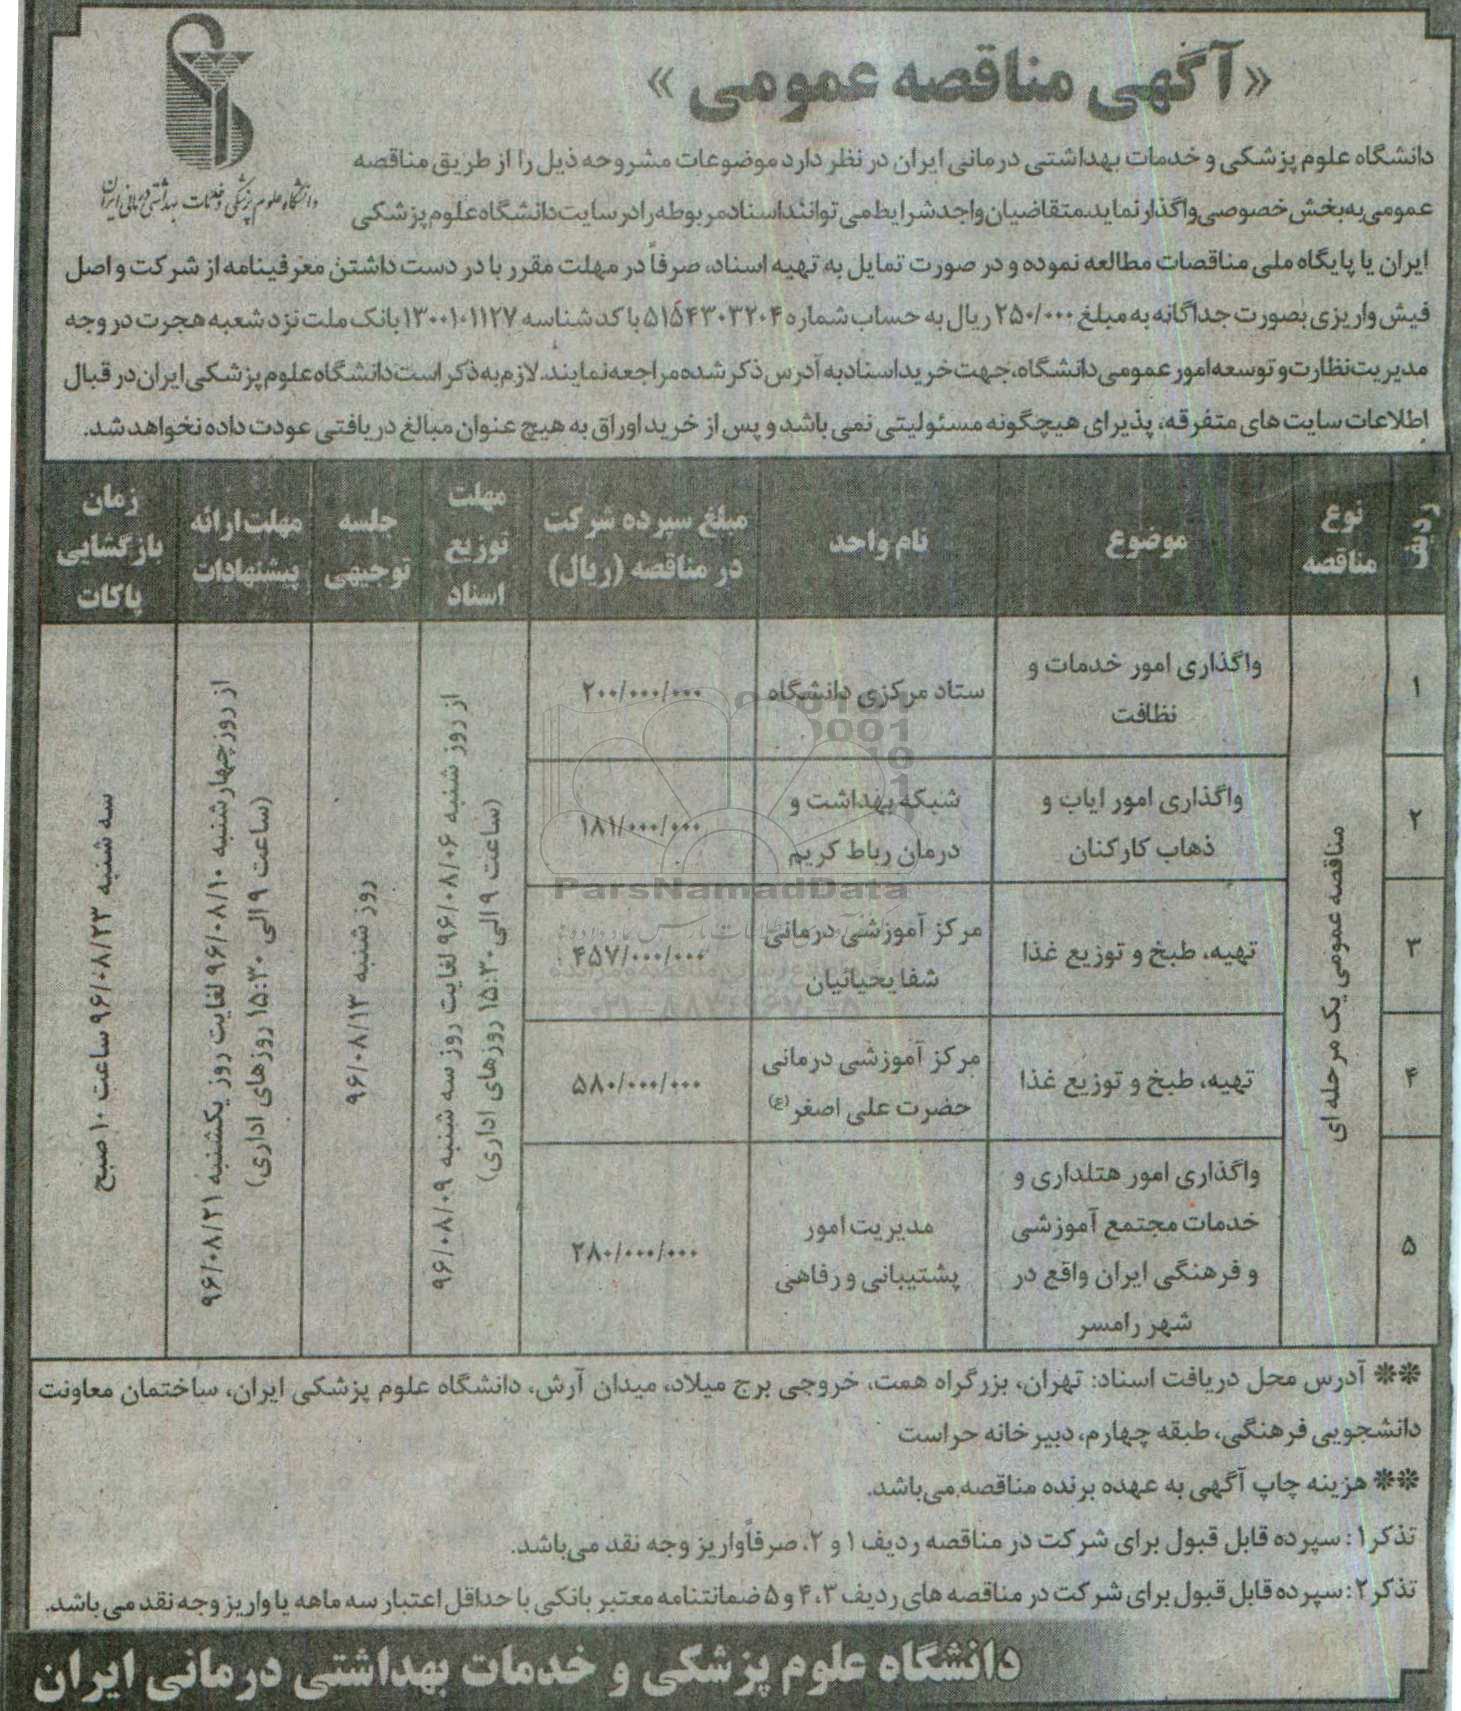 «آگهی مناقصه عمومی»
دانشگاه علوم پزشکی و خدمات بهداشتی درمانی ایران
دانشگاه علوم پزشکی و خدمات بهداشتی درمانی ایران در نظر دارد موضوعات مشروحه ذیل را از طریق مناقصه
عمومی به بخش خصوصی واگذار نماید. متقاضیان واجد شرایط می توانند اسناد مربوطه را در سایت دانشگاه علوم پزشکی
ایران یا پایگاه ملی مناقصات مطالعه نموده و در صورت تمایل به تهیه اسناد، صرفاً در مهلت مقرر با در دست داشتن معرفینامه از شرکت و اصل
فیش واریزی بصورت جداگانه به مبلغ ۲۵۰/۰۰۰ ریال به حساب شماره ۵۱۵۴۳۰۳۲۰۴ با کد شناسه ۱۳۰۰۱۰۱۱۲۷ بانک ملت نزد شعبه هجرت در وجه
مدیریت نظارت و توسعه امور عمومی دانشگاه، جهت خرید اسناد به آدرس ذکر شده مراجعه نمایند. لازم به ذکر است دانشگاه علوم پزشکی ایران در قبال
اطلاعات سایت های متفرقه، پذیرای هیچگونه مسئولیتی نمی باشد و پس از خرید اوراق به هیچ عنوان مبالغ دریافتی عودت داده نخواهد شد.
ردیف
نوع مناقصه
موضوع
نام واحد
مبلغ سپرده شرکت در مناقصه (ریال)
مهلت توزیع اسناد
جلسه توجیهی
مهلت ارائه پیشنهادات
زمان بازگشایی پاکات
۱
واگذاری امور خدمات و
نظافت
ستاد مرکزی دانشگاه
۲۰۰/۰۰۰/۰۰۰
۲
واگذاری امور ایاب و
ذهاب کارکنان
شبکه بهداشت و
درمان رباط کریم
۱۸۱/۰۰۰/۰۰۰
۳
تهیه، طبخ و توزیع غذا
مرکز آموزشی درمانی
شفا یحیائیان
۴۵۷/۰۰۰/۰۰۰
۴
تهیه، طبخ و توزیع غذا
مرکز آموزشی درمانی
حضرت علی اصغر(ع)
۵۸۰/۰۰۰/۰۰۰
۵
واگذاری امور هتلداری و
خدمات مجتمع آموزشی
و فرهنگی ایران واقع در
شهر رامسر
مدیریت امور
پشتیبانی و رفاهی
۲۸۰/۰۰۰/۰۰۰
مناقصه عمومی یک مرحله ای
از روز شنبه ۹۶/۰۸/۰۶ لغایت روز سه شنبه ۹۶/۰۸/۰۹
(ساعت ۹ الی ۱۵:۳۰ روزهای اداری)
روز شنبه ۹۶/۰۸/۱۳
از روز چهارشنبه ۹۶/۰۸/۱۰ لغایت روز یکشنبه ۹۶/۰۸/۲۱
(ساعت ۹ الی ۱۵:۳۰ روزهای اداری)
سه شنبه ۹۶/۰۸/۲۳ ساعت ۱۰ صبح
ParsNamadData
۰۲۱-۸۸۳۴۹۶۷۰-۵
** آدرس محل دریافت اسناد: تهران، بزرگراه همت، خروجی برج میلاد، میدان آرش، دانشگاه علوم پزشکی ایران، ساختمان معاونت
دانشجویی فرهنگی، طبقه چهارم، دبیرخانه حراست
** هزینه چاپ آگهی به عهده برنده مناقصه می‌باشد.
تذکر۱: سپرده قابل قبول برای شرکت در مناقصه ردیف ۱ و ۲، صرفاً واریز وجه نقد می‌باشد.
تذکر۲: سپرده قابل قبول برای شرکت در مناقصه های ردیف ۳، ۴ و ۵ ضمانتنامه معتبر بانکی با حداقل اعتبار سه ماهه یا واریز وجه نقد می باشد.
دانشگاه علوم پزشکی و خدمات بهداشتی درمانی ایران